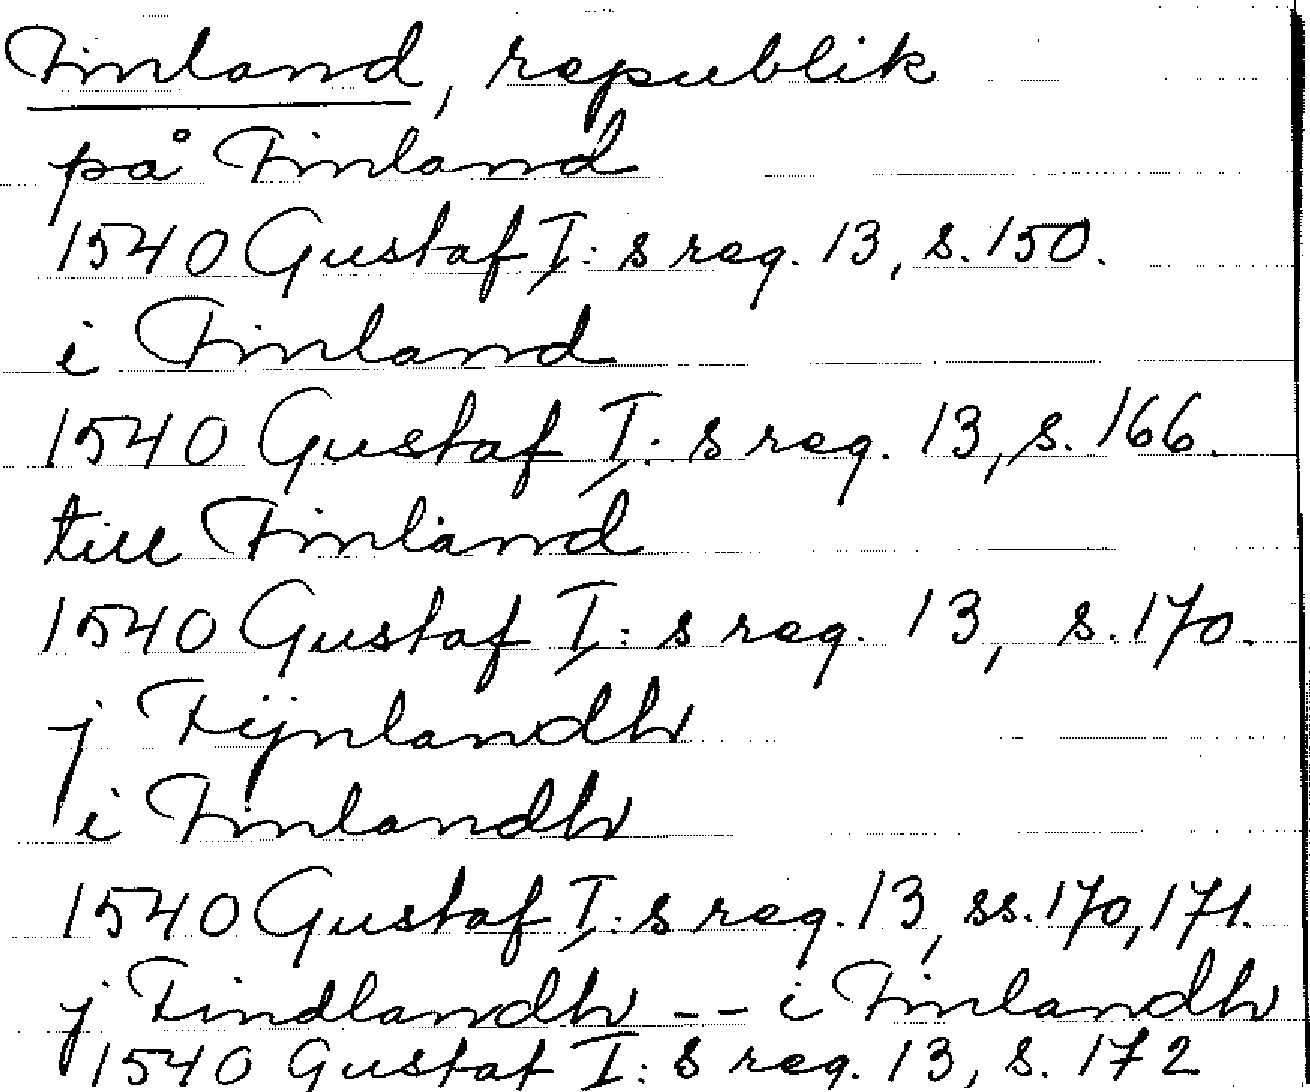 Finland, republik
på Finland
1540 Gustaf I:s reg. 13, s. 150.
i Finland
1540 Gustaf I:s reg. 13, s. 166.
till Finland
1540 Gustaf I:s reg. 13, s. 170.
j Fijnlandh
i Finlandh
1540 Gustaf I:s reg. 13, ss. 170, 171.
j Findlandh -- i Finlandh
1540 Gustaf I:s reg. 13, s. 172